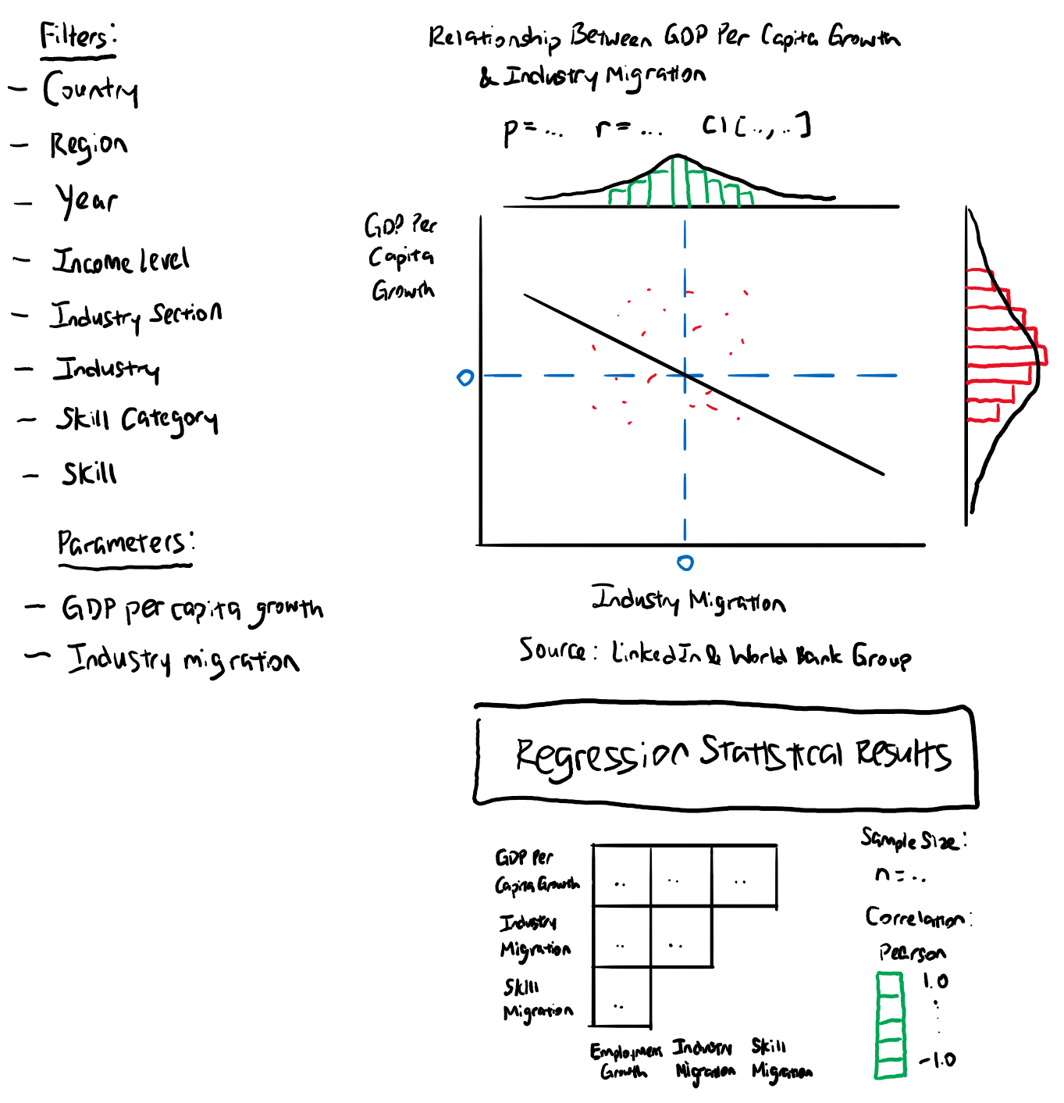 Filters:
- Country
- Region
- Year
- Income level
- Industry Section
- Industry
- Skill Category
- Skill
Parameters:
- GDP per capita growth
- Industry migration
Relationship Between GDP Per Capita Growth
& Industry Migration
p=... r=... CI [..,..]
GDP Per
Capita
Growth
0
0
Industry Migration
Source: LinkedIn & World Bank Group
Regression Statistical Results
GDP Per
Capita Growth
.. .. ..
Industry
Migration
.. ..
Skill
Migration
..
Employment
Growth
Industry
Migration
Skill
Migration
Sample Size:
n=..
Correlation:
Pearson
1.0
-1.0